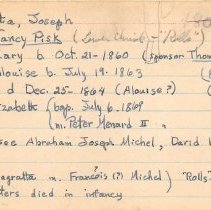 tia, Joseph
ancy Pisk (Lower Church - "Rolls"
ary b. Oct-21-1860 (sponsor Thom
Alouise b. July 19.1863 (
d Dec.25-1864 (Alouise?)
izabeth (bap. July 6.1869
(m. Peter Menard II "
see Abraham Joseph Michel, David
agratta m. François (?) Michel) "Rolls"
ters died in infancy